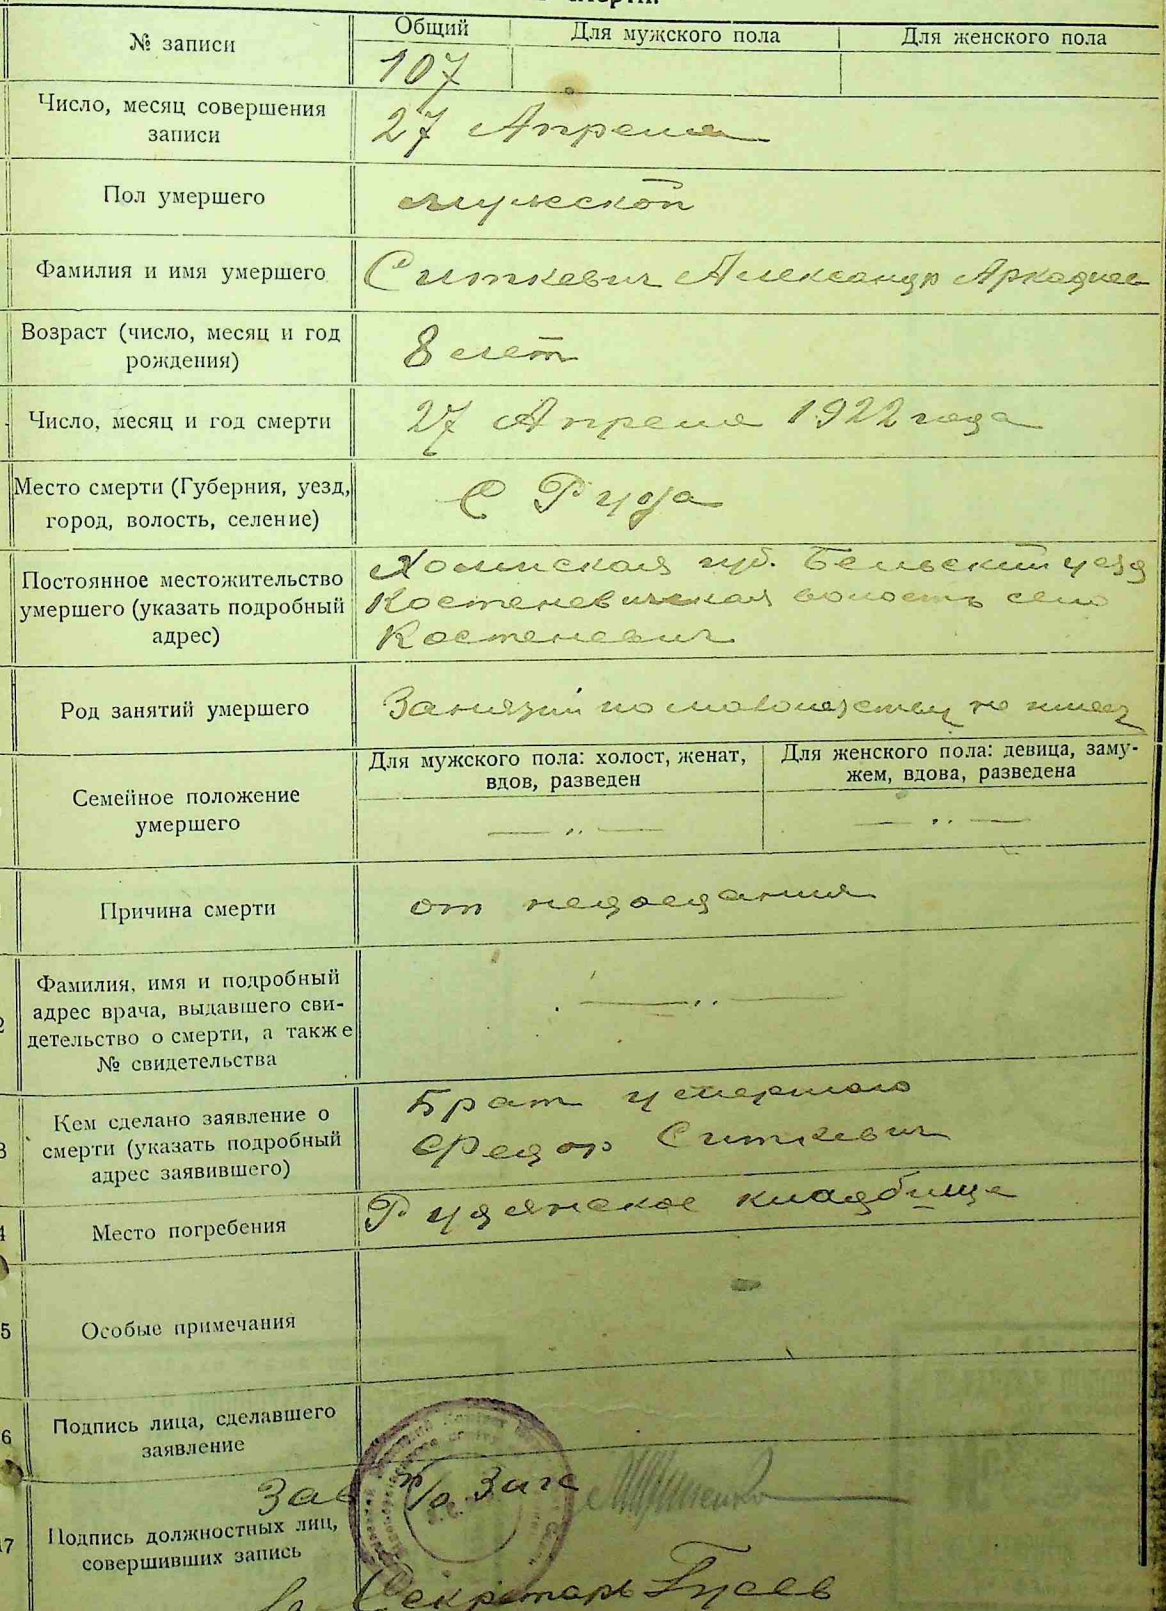 № записи
Общий
Для мужского пола
Для женского пола
107
Число, месяц совершения
записи
27 Апреля
Пол умершего
мужской
Фамилия и имя умершего
Ситкевич Александр Аркадиев
Возраст (число, месяц и год
рождения)
8 лет
Число, месяц и год смерти
27 Апреля 1922 года
Место смерти (Губерния, уезд,
город, волость, селение)
С Рудя
Постоянное местожительство
умершего (указать подробный
адрес)
Холмская губ. Бельский уезд
Костеневическая волость село
Костеневич
Род занятий умершего
Занятий по малолетству не имел
Семейное положение
умершего
Для мужского пола: холост, женат,
вдов, разведен
Для женского пола: девица, заму-
жем, вдова, разведена
— „ —
— „ —
Причина смерти
от недоедания
2
Фамилия, имя и подробный
адрес врача, выдавшего сви-
детельство о смерти, а также
№ свидетельства
— „ —
3
Кем сделано заявление о
смерти (указать подробный
адрес заявившего)
Брат умершего
Федор Ситкевич
4
Место погребения
Рудянское кладбище
5
Особые примечания
6
Подпись лица, сделавшего
заявление
17
Подпись должностных лиц,
совершивших запись
Зав п/о Загс
Секретарь Гусев